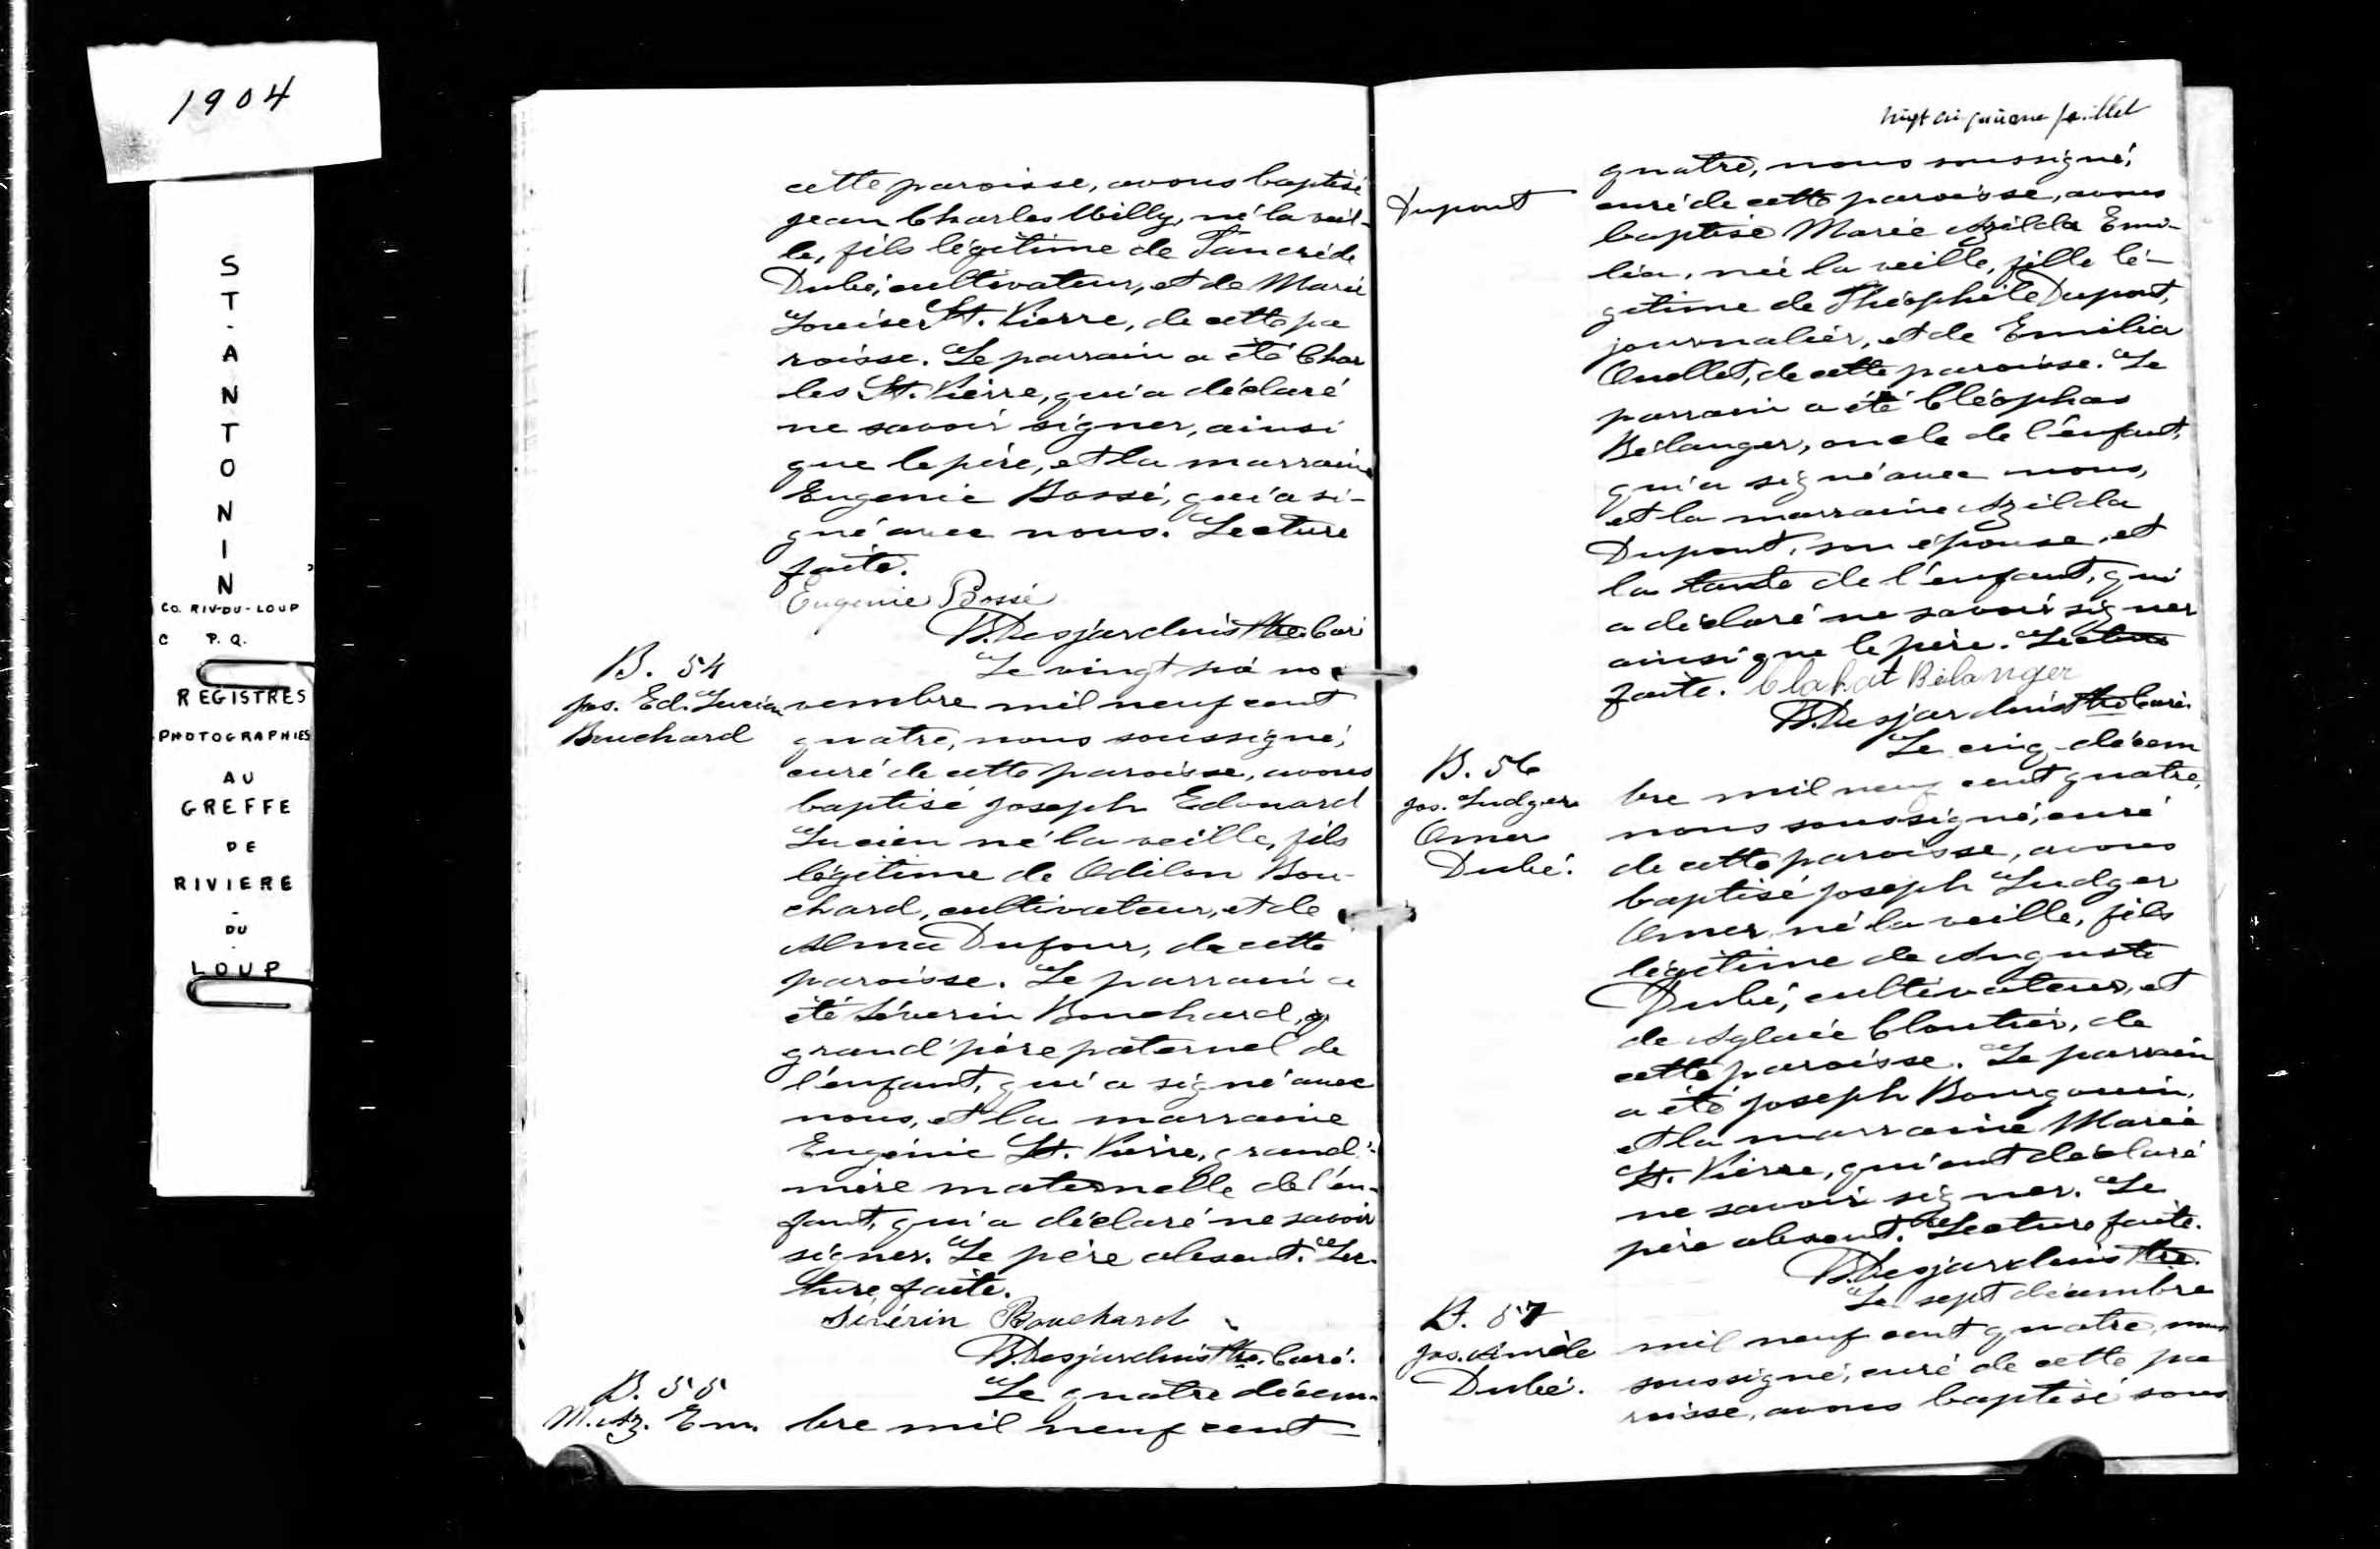 1904
ST. ANTONIN
CO. RIV-DU-LOUP
C P.Q.
REGISTRES
PHOTOGRAPHIES
AU
GREFFE
DE
RIVIERE
-
DU
-
LOUP
cette paroisse, avons baptisé
Jean Charles Willy, né la veil-
le, fils légitime de Tancrède
Dubé, cultivateur, et de Marie
Louise St. Pierre, de cette pa
roisse. Le parrain a été Char
les St. Pierre, qui a déclaré
ne savoir signer, ainsi
que le père, et la marraine
Eugenie Bossé, qui a si-
gné avec nous. Lecture
faite.
Eugenie Bossé
B. Desjardins Ptre. Curé
B. 54
Jos. Ed. Lucien
Bouchard
Le vingt six no
vembre mil neuf cent
quatre, nous soussigné,
curé de cette paroisse, avons
baptisé Joseph Edouard
Lucien né la veille, fils
légitime de Odilon Bou-
chard, cultivateur, et de
Alma Dufour, de cette
paroisse. Le parrain a
été Séverin Bouchard, g
grand'père paternel de
l'enfant, qui a signé avec
nous, et la marraine
Eugénie St. Pierre, grand'-
mère maternelle de l'en-
fant, qui a déclaré ne savoir
signer. Le père absent. Lec-
ture faite.
Sévérin Bouchard
B. Desjardins Ptre. Curé.
B. 55
M. Az. Em.
Le quatre décem-
bre mil neuf cent
vingt cinquième feuillet
Dupont
quatre, nous soussigné,
curé de cette paroisse, avons
baptisé Marie Azilda Emi-
lia, née la veille, fille lé-
gitime de Théophile Dupont,
journalier, et de Emilia
Ouellet, de cette paroisse. Le
parrain a été Cléophas
Bélanger, oncle de l'enfant,
qui a signé avec nous,
et la marraine Azilda
Dupont, son épouse, et
la tante de l'enfant, qui
a déclaré ne savoir signer
ainsi que le père. Lecture
faite. Bélanger
B. Desjardins Ptre Curé.
B. 56
Jos. Ludger
Omer
Dubé.
Le cinq décem
bre mil neuf cent quatre,
nous soussigné, curé
de cette paroisse, avons
baptisé Joseph Ludger
Omer, né la veille, fils
légitime de Auguste
Dubé, cultivateur, et
de Aglaée Cloutier, de
cette paroisse. Le parrain
a été Joseph Bourgouin,
et la marraine Marie
St. Pierre, qui ont déclaré
ne savoir signer. Le
père absent. Lecture faite.
B. Desjardins Ptre.
B. 57
Jos.
Dubé.
Le sept décembre
mil neuf cent quatre, nous
soussigné, curé de cette pa
roisse, avons baptisé sous